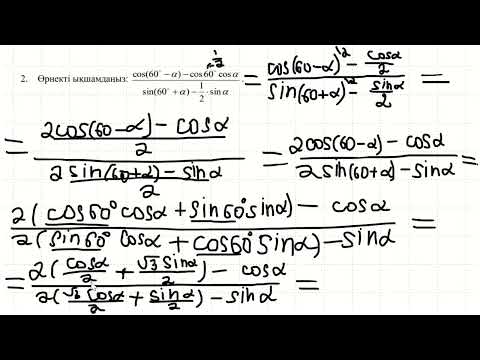 1/2
2. Өрнекті ықшамданыз: (cos(60° − α) − cos60° cosα)/(sin(60° + α) − 1/2 · sinα) = (cos(60-α)^\2 − cosα/2)/(sin(60+α)^\2 − sinα/2) =
= ((2cos(60-α) − cosα)/2)/((2sin(60+α) − sinα)/2) = (2cos(60-α) − cosα)/(2sin(60+α) − sinα) =
(2(cos60° cosα + sin60° sinα) − cosα)/(2(sin60° cosα + cos60° sinα) − sinα) =
= (2(cosα/2 + √3 sinα/2) − cosα)/(2(√3 cosα/2 + sinα/2) − sinα) =